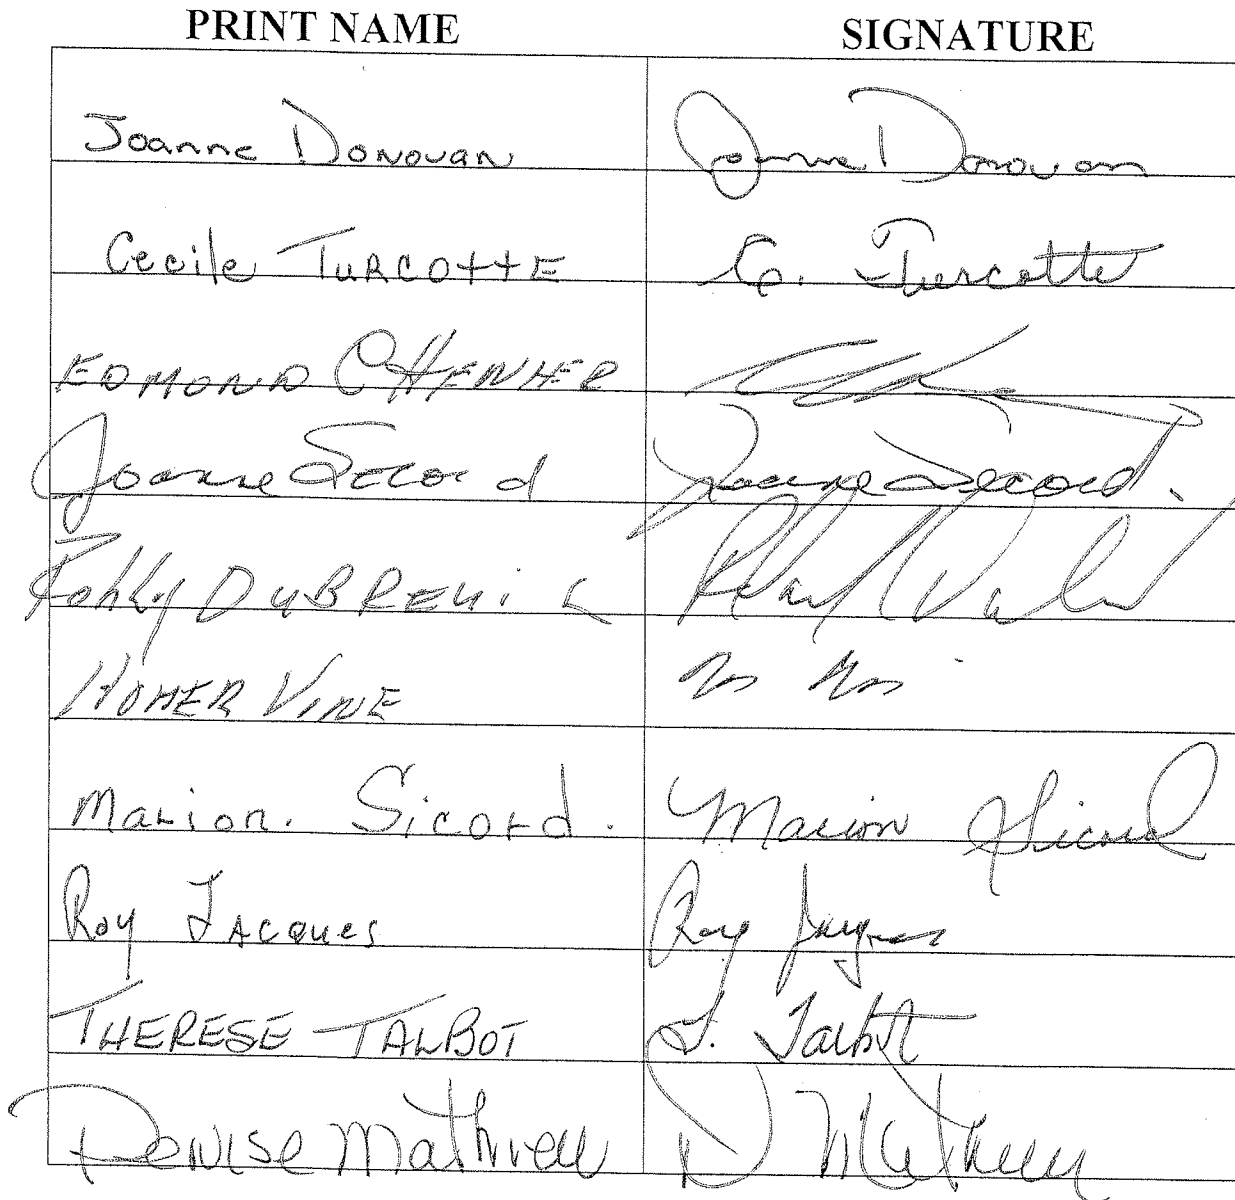 PRINT NAME SIGNATURE
Joanne Donovan Joanne Donovan
Cecile TURCOTTE C. Turcotte
EDMOND
Joanne Secord Joanne Secord.
DUBREUIL
HOMER VINE
Marion. Sicord. Marion Sicord
Roy Jacques Roy Jacques
THERESE TALBOT T. Talbot
Denise Mathieu D Mathieu